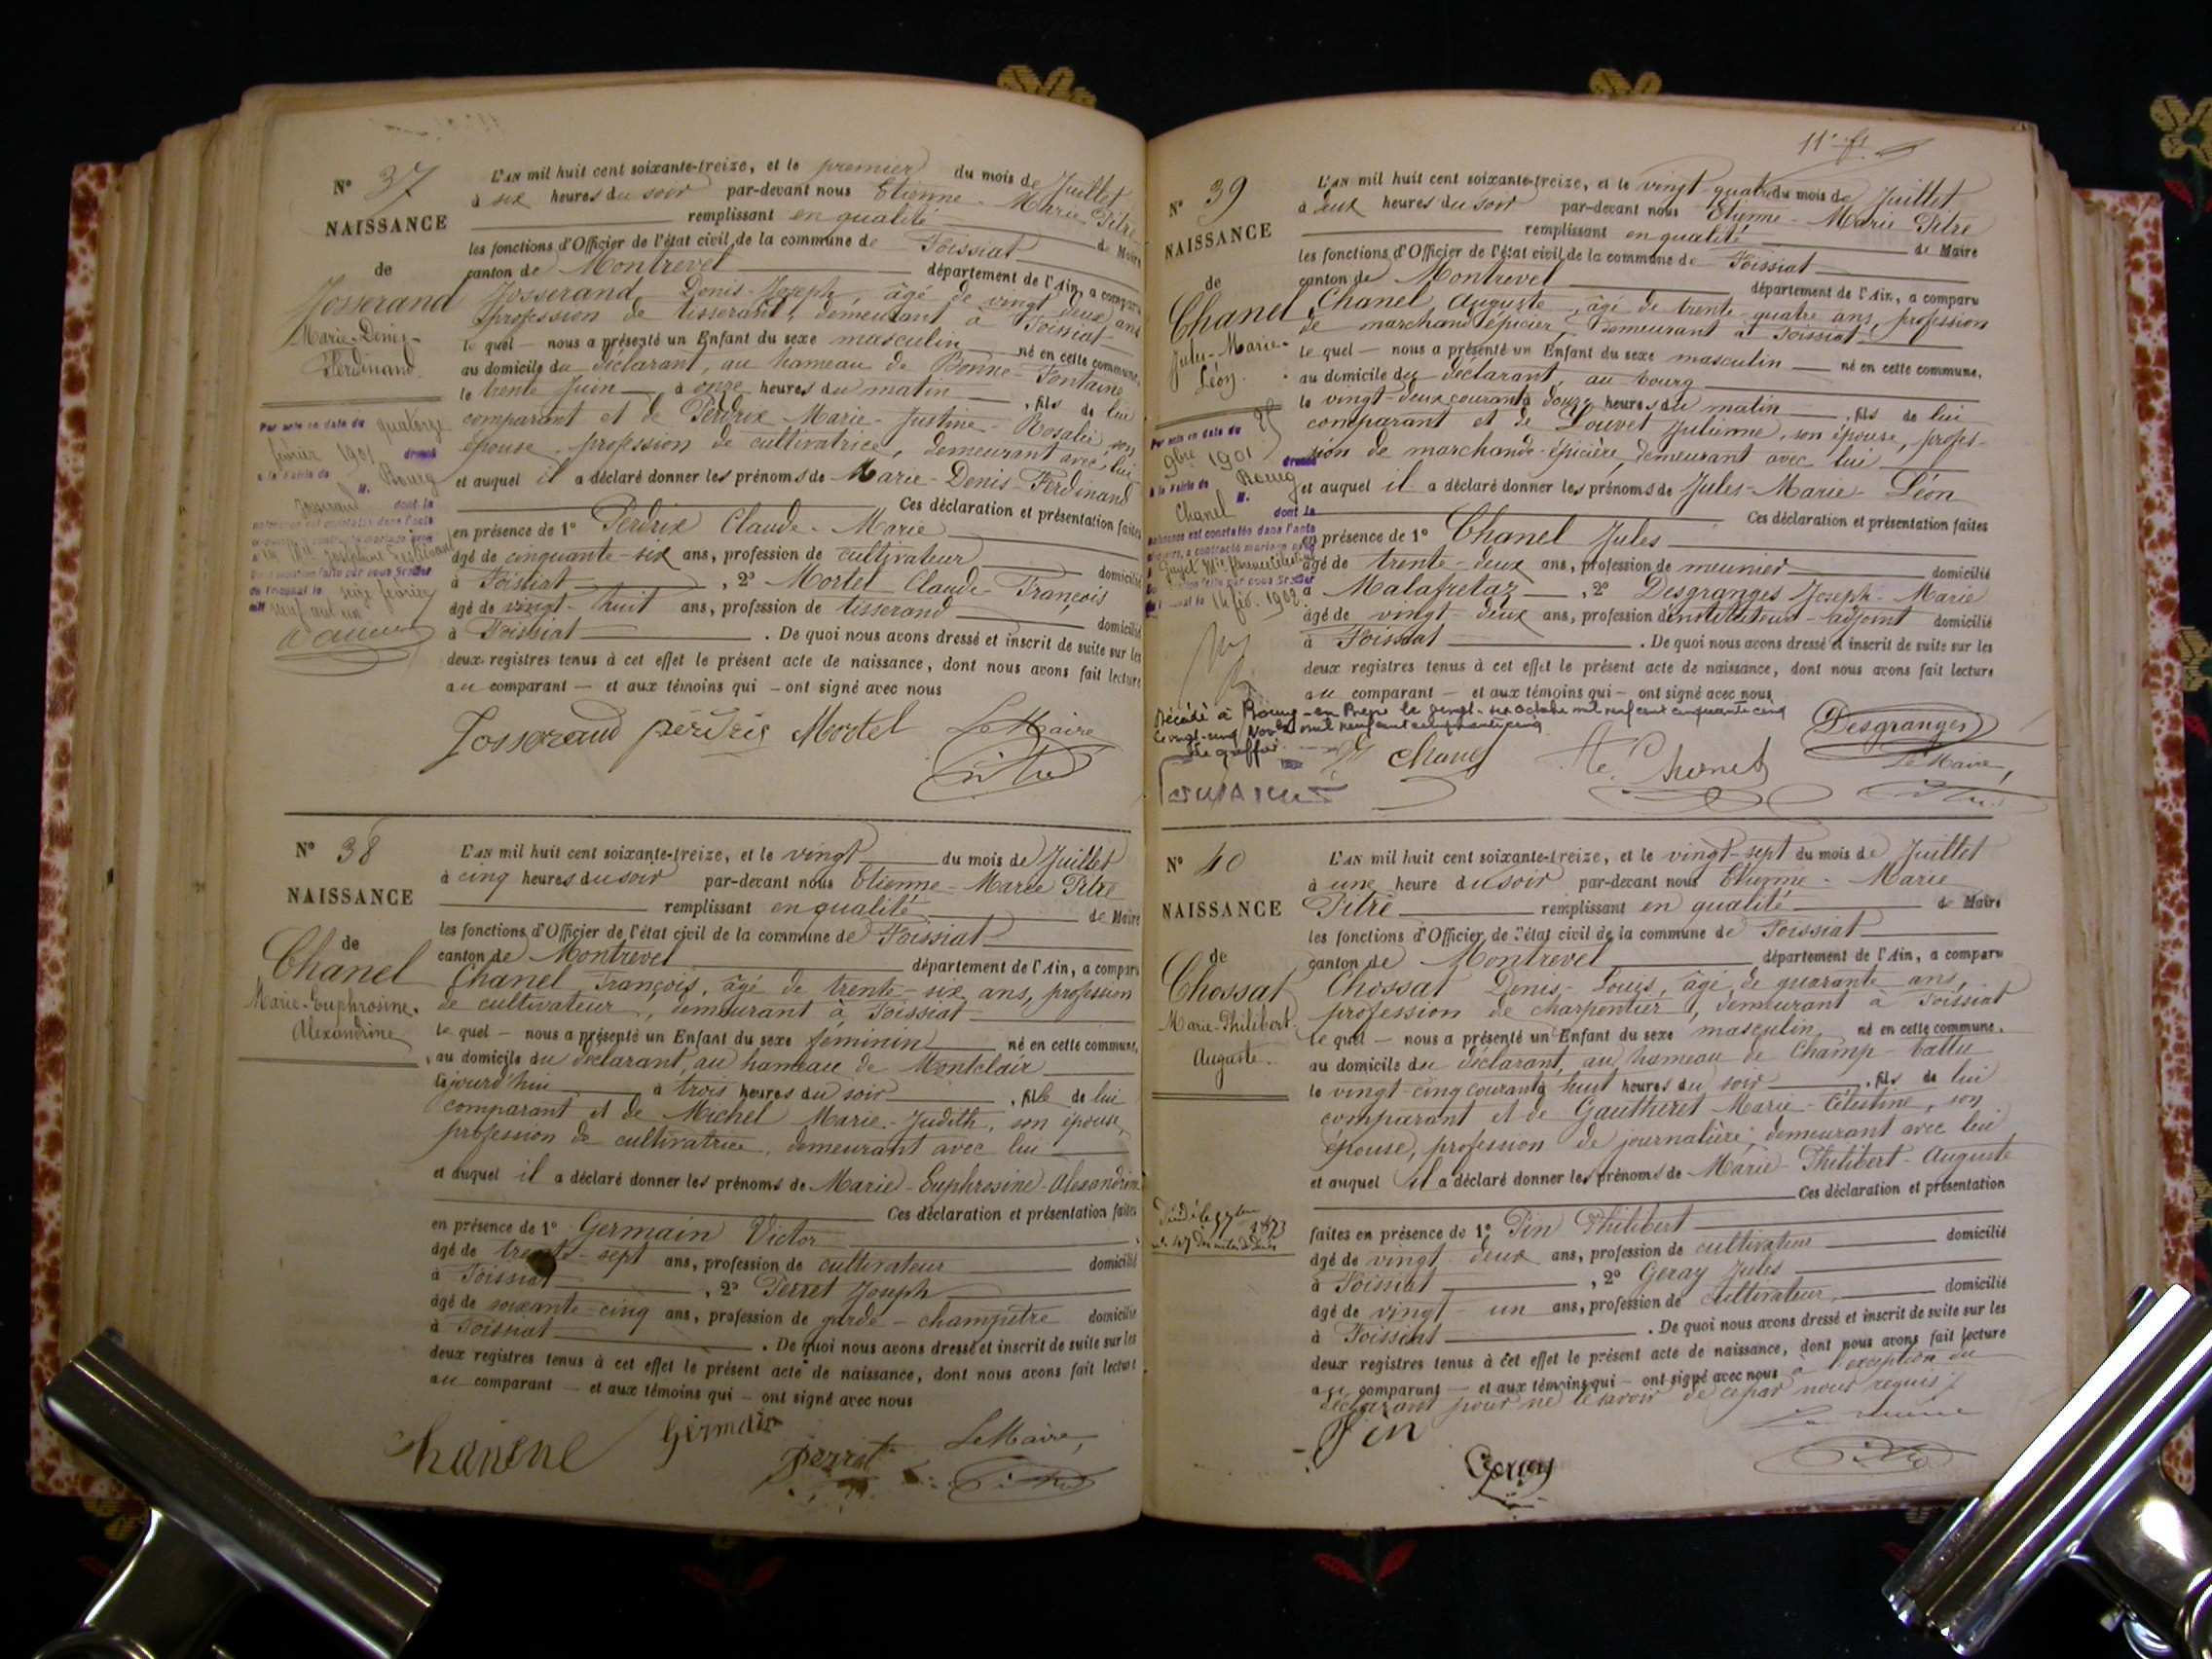 N° 37
NAISSANCE
de
Josserand
Marie-Denis-
Ferdinand
Par acte en date du quatorze
février 1901 dressé
à la Mairie de Bourg
M.
Josserand dont la
naissance est constatée dans l'acte
a Mlle Joséphine
le seize février
mil neuf cent un
L'AN mil huit cent soixante-treize, et le premier du mois de Juillet
à six heures du soir par-devant nous Etienne-Marie Pitre
remplissant en qualité de Maire
les fonctions d'Officier de l'état civil de la commune de Foissiat
canton de Montrevel département de l'Ain, a comparu
Josserand Denis-Joseph, âgé de vingt deux ans
profession de tisserand, demeurant à Foissiat
le quel — nous a présenté un Enfant du sexe masculin né en cette commune,
au domicile du déclarant, au hameau de Bonne-Fontaine
le trente Juin à onze heures du matin, fils de lui
comparant et de Perdrix Marie-Justine-Rosalie son
épouse, profession de cultivatrice, demeurant avec lui
et auquel il a déclaré donner les prénoms de Marie-Denis-Ferdinand
Ces déclaration et présentation faites
en présence de 1° Perdrix Claude-Marie
âgé de cinquante-six ans, profession de cultivateur domicilié
à Foissiat, 2° Mortel Claude-François
âgé de vingt-huit ans, profession de tisserand domicilié
à Foissiat. De quoi nous avons dressé et inscrit de suite sur les
deux registres tenus à cet effet le présent acte de naissance, dont nous avons fait lecture
au comparant — et aux témoins qui — ont signé avec nous
Josserand perdrix Mortel Le Maire
Pitre
N° 38
NAISSANCE
de
Chanel
Marie-Euphrosine-
Alexandrine
L'AN mil huit cent soixante-treize, et le vingt du mois de Juillet
à cinq heures du soir par-devant nous Etienne-Marie Pitre
remplissant en qualité de Maire
les fonctions d'Officier de l'état civil de la commune de Foissiat
canton de Montrevel département de l'Ain, a comparu
Chanel François, âgé de trente-six ans, profession
de cultivateur, demeurant à Foissiat
le quel — nous a présenté un Enfant du sexe féminin né en cette commune,
au domicile du déclarant, au hameau de Montclair
aujourd'hui à trois heures du soir, fille de lui
comparant et de Michel Marie-Judith, son épouse,
profession de cultivatrice, demeurant avec lui
et auquel il a déclaré donner les prénoms de Marie-Euphrosine-Alexandrine
Ces déclaration et présentation faites
en présence de 1° Germain Victor
âgé de trente-sept ans, profession de cultivateur domicilié
à Foissiat, 2° Perret Joseph
âgé de soixante-cinq ans, profession de garde-champêtre domicilié
à Foissiat. De quoi nous avons dressé et inscrit de suite sur les
deux registres tenus à cet effet le présent acte de naissance, dont nous avons fait lecture
au comparant — et aux témoins qui — ont signé avec nous
Germain
perret Le Maire,
Pitre
11e ft
N° 39
NAISSANCE
de
Chanel
Jules-Marie-
Léon
Par acte en date du 25
9bre 1901 dressé
à la Mairie de Bourg
M.
Chanel dont la
naissance est constatée dans l'acte
ci-contre, a contracté mariage avec
le 14 fév. 1902
L'AN mil huit cent soixante-treize, et le vingt-quatre du mois de Juillet
à deux heures du soir par-devant nous Etienne-Marie Pitre
remplissant en qualité de Maire
les fonctions d'Officier de l'état civil de la commune de Foissiat
canton de Montrevel département de l'Ain, a comparu
Chanel Auguste, âgé de trente-quatre ans, profession
de marchand épicier, demeurant à Foissiat
le quel — nous a présenté un Enfant du sexe masculin né en cette commune,
au domicile du déclarant, au bourg
le vingt-deux courant à douze heures du matin, fils de lui
comparant et de Louvet Julienne, son épouse, profes-
sion de marchande-épicière, demeurant avec lui
et auquel il a déclaré donner les prénoms de Jules-Marie-Léon
Ces déclaration et présentation faites
en présence de 1° Chanel Jules
âgé de trente-deux ans, profession de meunier domicilié
à Malafretaz, 2° Desgranges Joseph-Marie
âgé de vingt-deux ans, profession d'instituteur-adjoint domicilié
à Foissiat. De quoi nous avons dressé et inscrit de suite sur les
deux registres tenus à cet effet le présent acte de naissance, dont nous avons fait lecture
au comparant — et aux témoins qui — ont signé avec nous
Décédé à Bourg-en-Bresse le vingt-six octobre mil neuf cent cinquante cinq
Le vingt-cinq Novembre mil neuf cent cinquante cinq
Le greffier
Chanel Desgranges
Le Maire,
Pitre
N° 40
NAISSANCE
de
Chossat
Marie-Philibert-
Auguste
Décédé le 1873
L'AN mil huit cent soixante-treize, et le vingt-sept du mois de Juillet
à une heure du soir par-devant nous Etienne-Marie
Pitre remplissant en qualité de Maire
les fonctions d'Officier de l'état civil de la commune de Foissiat
canton de Montrevel département de l'Ain, a comparu
Chossat Denis-Louis, âgé de quarante ans,
profession de charpentier, demeurant à Foissiat
le quel — nous a présenté un Enfant du sexe masculin né en cette commune,
au domicile du déclarant, au hameau de Champ-battu
le vingt-cinq courant à huit heures du soir, fils de lui
comparant et de Gautheret Marie-Célestine, son
épouse, profession de journalière, demeurant avec lui
et auquel il a déclaré donner les prénoms de Marie-Philibert-Auguste
Ces déclaration et présentation
faites en présence de 1° Pin Philibert
âgé de vingt deux ans, profession de cultivateur domicilié
à Foissiat, 2° Geray Jules
âgé de vingt-un ans, profession de cultivateur domicilié
à Foissiat. De quoi nous avons dressé et inscrit de suite sur les
deux registres tenus à cet effet le présent acte de naissance, dont nous avons fait lecture
au comparant — et aux témoins qui — ont signé avec nous à l'exception du
déclarant pour ne le savoir de ce par nous requis
Pin Le maire
Geray Pitre